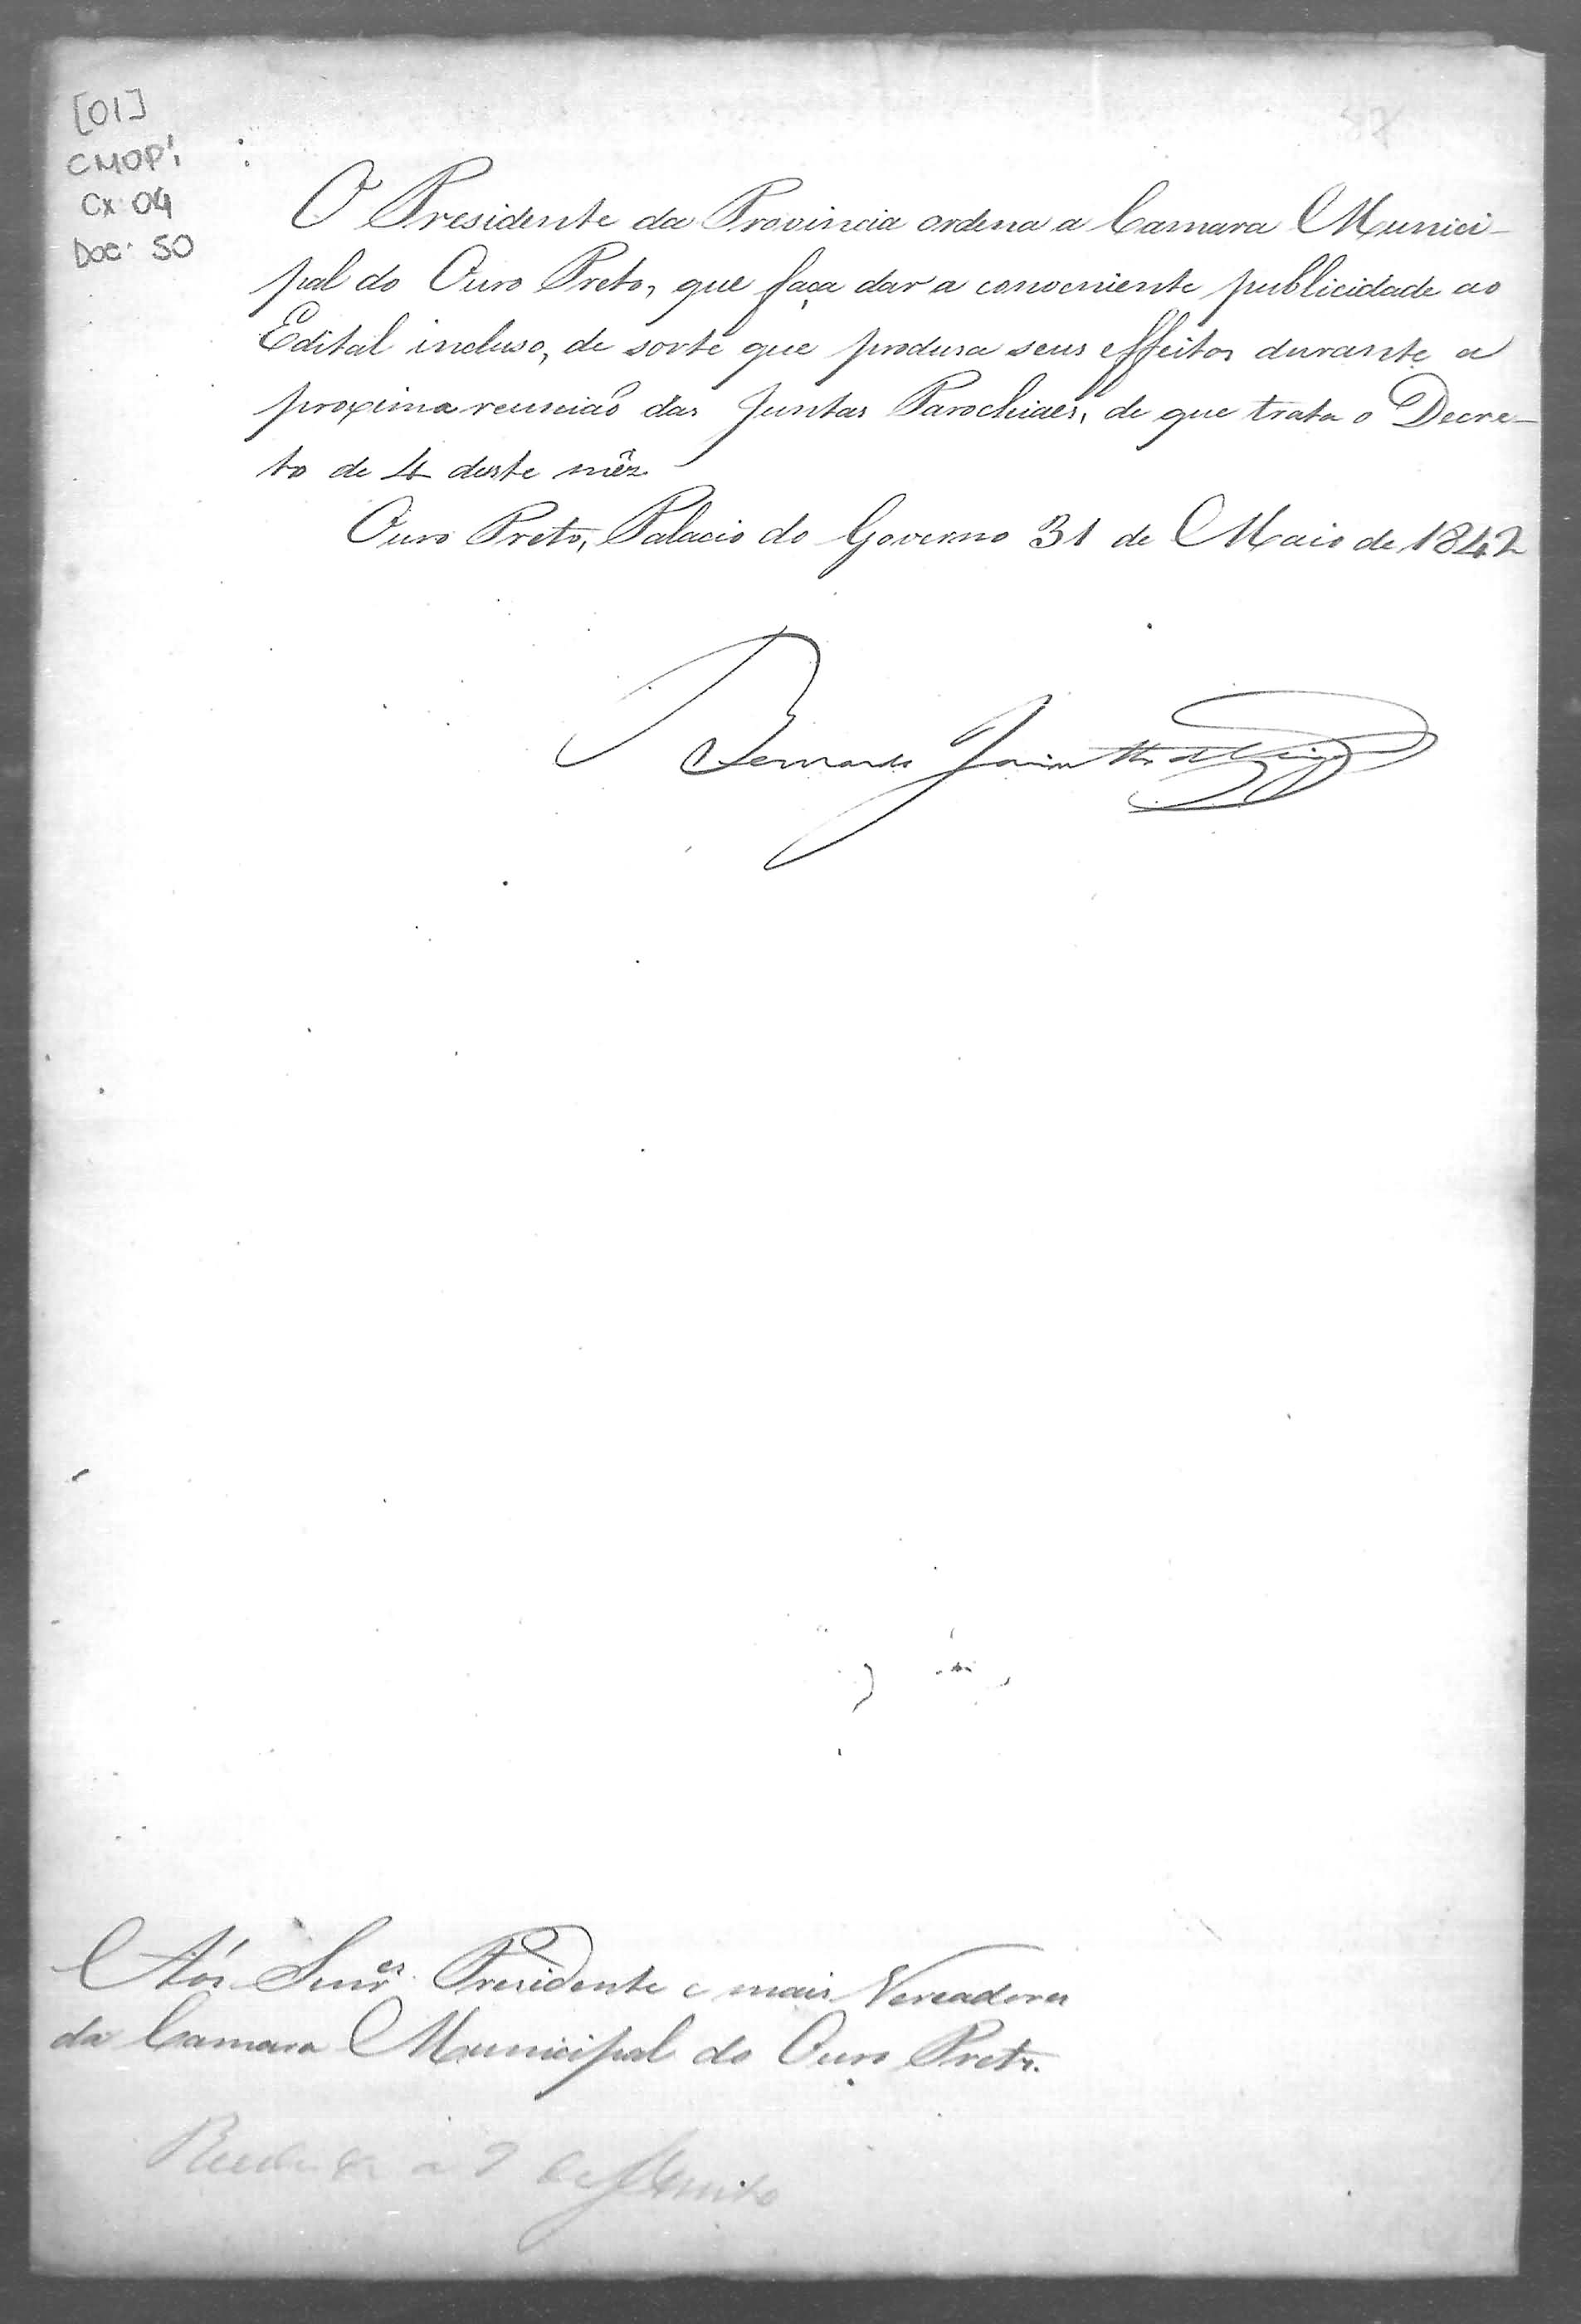 [01]
CMOP
Cx 04
Doc. 50
57
O Presidente da Provincia ordena a Camara Munici-
pal do Ouro Preto, que faça dar a conveniente publicidade ao
Edital incluso, de sorte que produsa seus effeitos durante a
proxima reunião das Juntas Parochiaes, de que trata o Decre-
to de 4 deste mêz
Ouro Preto, Palacio do Governo 31 de Maio de 1842
Bernardo Jacintho da Veiga
Aos Senres. Presidente e mais Vereadores
da Camara Municipal do Ouro Preto.
a de Junho